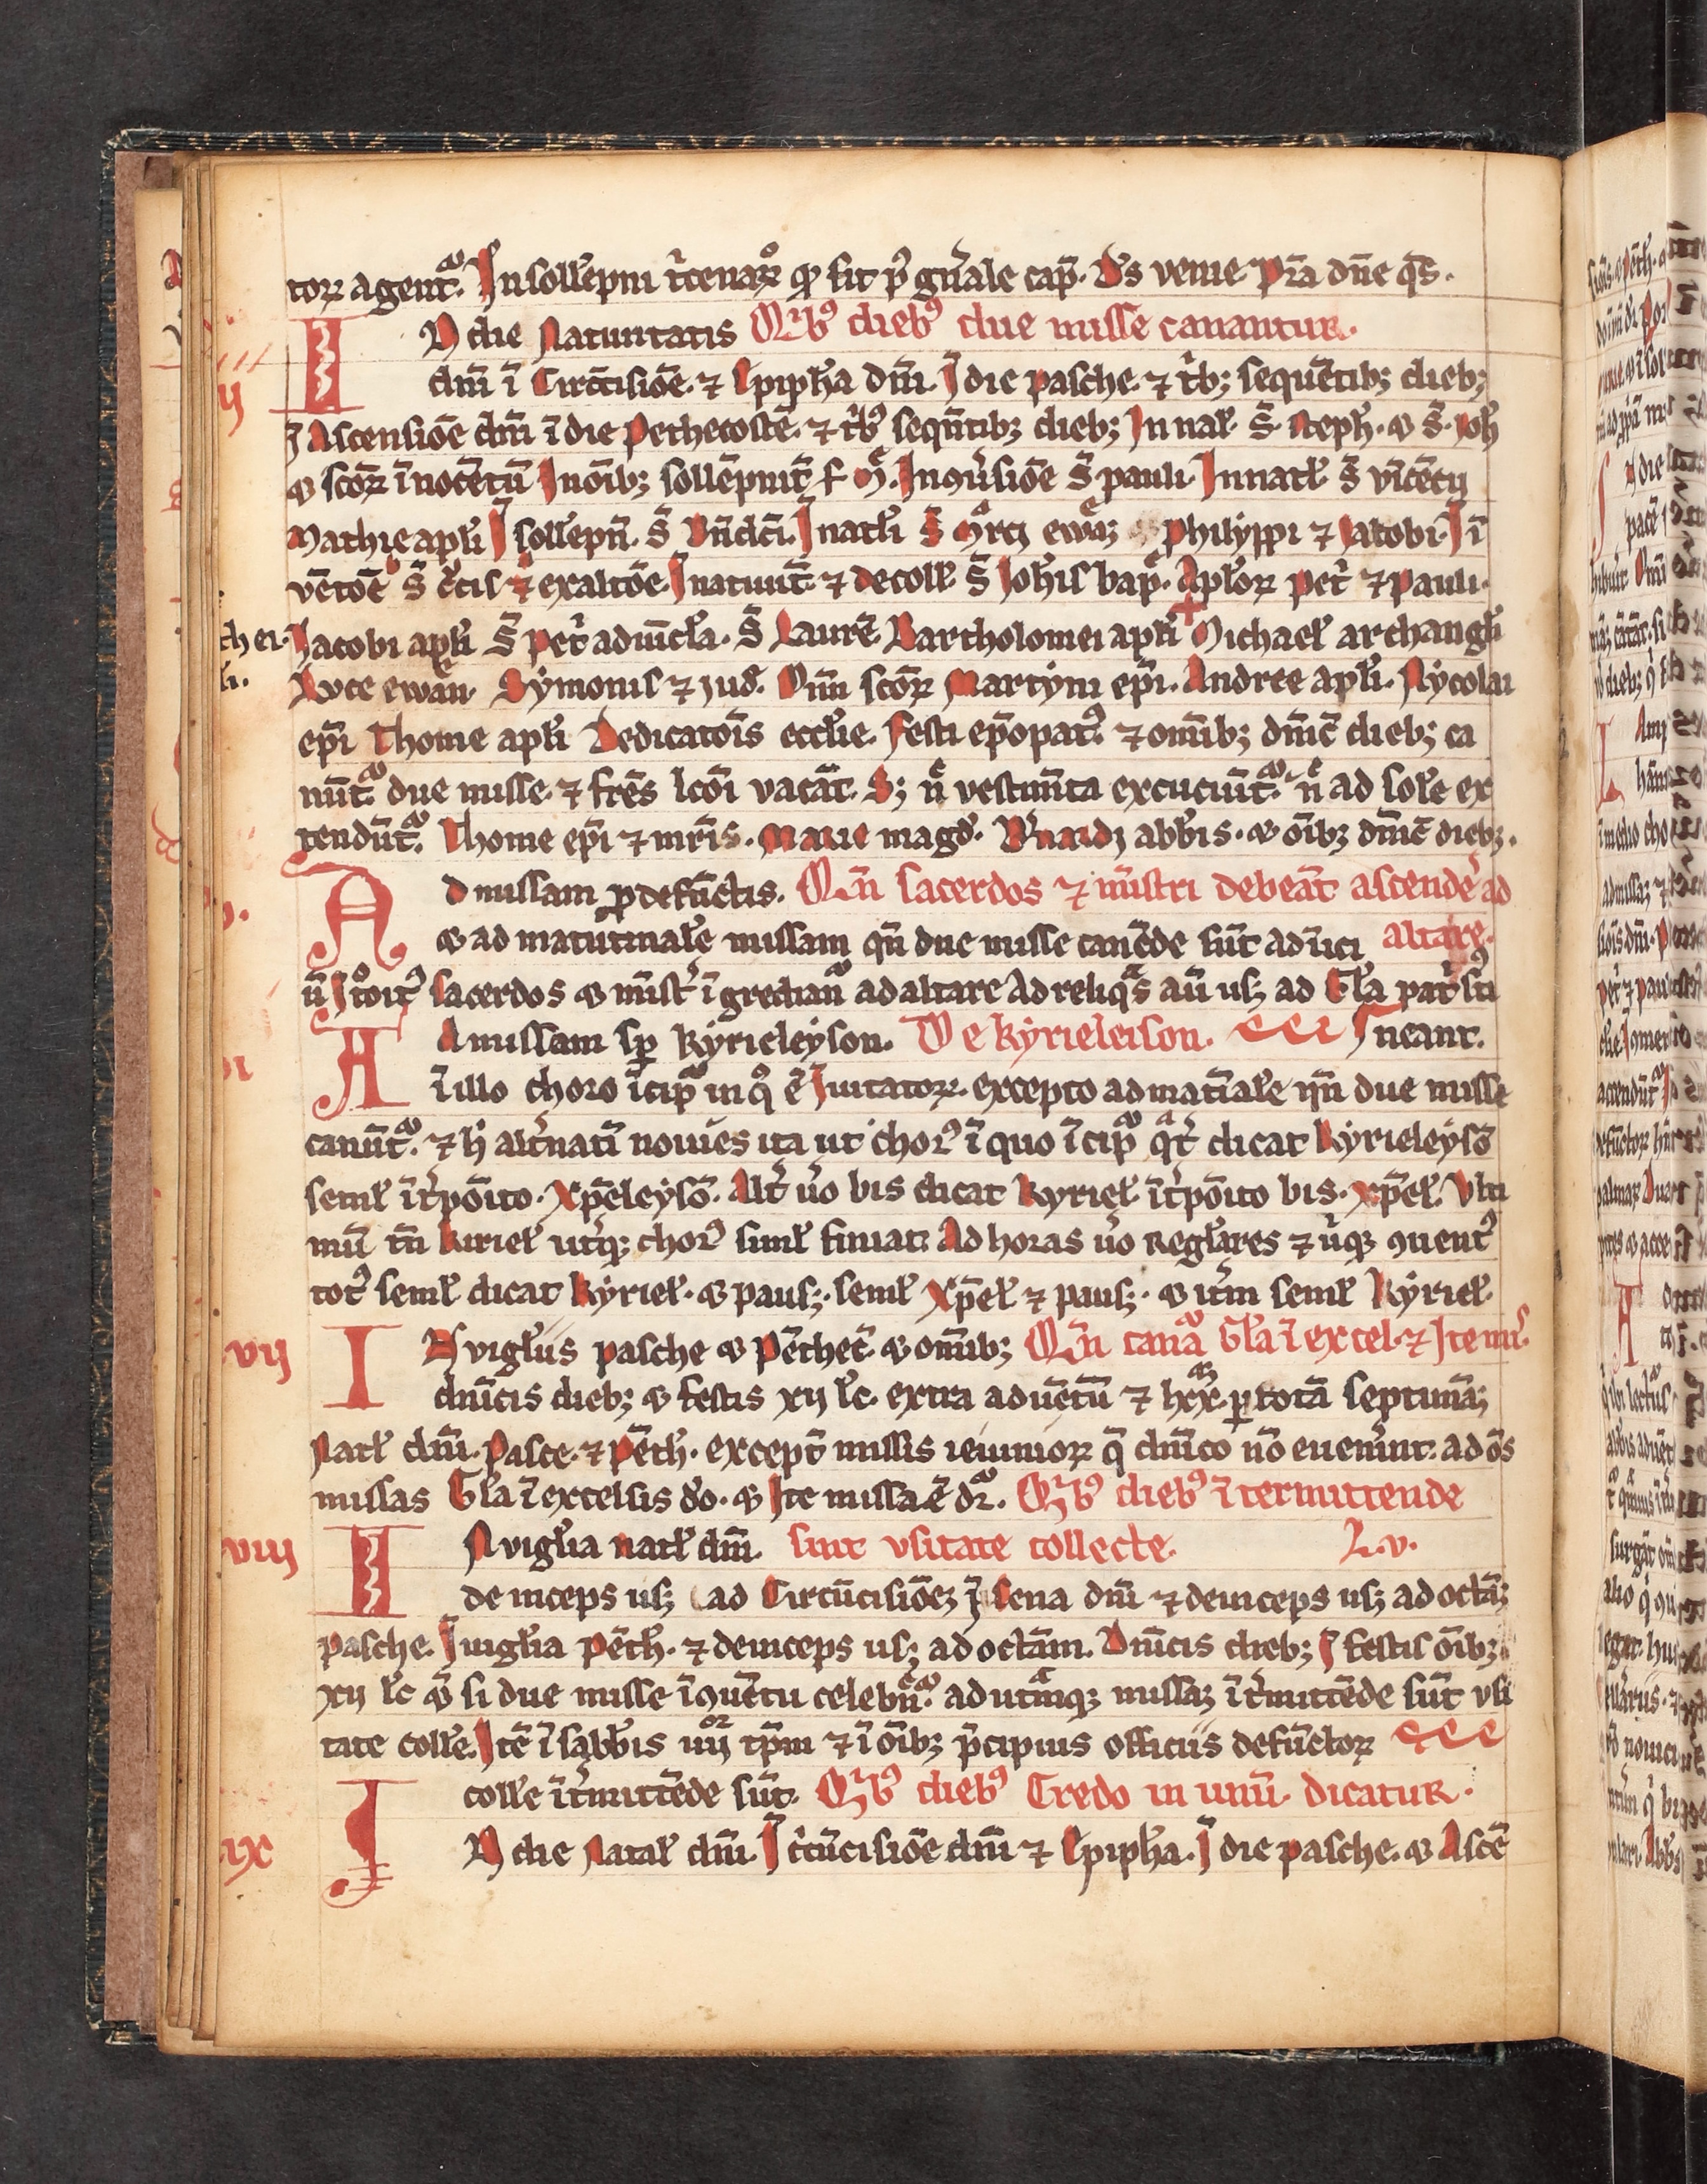 toꝝ agent᷑. In sollēpni t͛cenaꝝ qd fit p͛ gn͛ale cap̄. Ds venie. Pr̄a dn̄e qs̄.
In die Natiuitatis Quib⁹ dieb⁹ due misse canantur.
dn̄i ī Circūcisiōe. ⁊ Epiph̄ia dn̄i. I die pasche. ⁊ t͛b; sequētib; dieb;
I Ascensiōe dn̄i ī die Penthecostē. ⁊ t͛b⁹ sequn̄tib; dieb; In nat̄ S̄. Steph̄. & S̄. Joh̄
& scōꝝ īnocētū In oīb; sollēpnit̄ s̄ M͛. In ꝯu͛siōe S̄ pauli. In natł S̄ vīcētij
Mathie apłi I sollēpn̄. S̄ Bn̄dc̄i. I natłi S̄ M͛rci ewā; Philyppi ⁊ Jacobi. I ī
vētōe S̄ c͛cis ⁊ exaltōe. I natiuit̄. ⁊ decołł S̄ Joh̄is bap̄. Apłoꝝ pet͛ ⁊ pauli.
thei. Jacobi apłi S̄ Pet͛ aduīcła. S̄ Laurē Bartholomei apłi Michaeł archangłi
li. Luce ewān. Symonis ⁊ Jud̄. Om̄ scōꝝ Martyni ep̄i. Andree apłi. Nycolai
ep̄i Thome apłi Dedicatōis eccłie. Festi ep̄opat⁹. ⁊ om̄ib; dn̄ic̄ dieb; ca
nūt᷑. due misse. ⁊ frēs lcōi vacāt. S; n̄ vestimn̄ta excuciūt᷑. n̄ ad sole ex
tendūt᷑. Thome ep̄i ⁊ mr̄is. Marie magd̄. Bn̄ardi abb̄is. & oīb; dn̄ic̄ dieb;.
Ad missam ꝓ defūctis. Qn̄ sacerdos ⁊ mīstri debeāt ascende͛ ad
& ad matutinałe missam qn̄ due misse canēde sūt aduēci altare.
sacerdos & mīst͛ īgrediant᷑ ad altare Ad reliq͛s aū us; ad Gła pat͛
Ad missam sp̄ Kyrieleyson. De kyrieleison. Ineant.
ī illo choro īcip᷑ in q̊ ē Iuitatoꝝ. excepto ad matīałe qn̄ due misse
canūt᷑. ⁊ h̄ alt͛natī nouies ita ut chor⁹ ī quo īcip᷑ q͛t͛ dicat Kyrieleysō
semł īt͛pōito. Xp̄eleysō. Alt͛ u͛o bis dicat Kyrieł. īt͛pōito bis. xp̄eł. Vlti
mū tn̄ kirieł ut͛q; chor⁹ simł finiat. Ad horas u͛o regłares ⁊ ꝯuent⁹
tot⁹ semł dicat Kyrieł. & paus;. semł Xp̄eł ⁊ paus;. & it͛m semł Kyrieł.
vij In vigłiis pasche & Pēthec̄. & om̄ib; Qn̄ canā᷑ Gła ī excel. ⁊ Ite mi͛.
dn̄icis dieb; & festis xij łc. extra aduētū ⁊ lxx. ꝑ totā septimā;
Natł dn̄i. Pasce. ⁊ Pēth̄. except̄ missis ieiunioꝝ q̄ dn̄ico nō euen͛int. ad ōs
missas Gła ī excelsis d̄o. & Ite missa ē dr̄. Quib⁹ dieb⁹ ītermittende
viij In vigłia natł dn̄i. sunt vsitate collecte. L.v.
deinceps us; ad Circūcisiōe; I Cena dn̄i ⁊ deinceps us; ad octā;
pasche. I uigłia Pēth̄. ⁊ deinceps us; ad octām. Dn̄icis dieb; I festis oīb;
xij łc si due misse īꝯuētu celebn̄t᷑. ad ut͛mq; missa; īt͛mittēde sūt vsi
tate colłe. Itē ī sabb̄is iiijor tp̄m ⁊ ī oīb; p͛cipuis officiis defūctoꝝ
colłe īt͛mittēde sūt. Quib⁹ dieb⁹ Credo in unū dicatur.
ix In die Natał dn̄i. I C͛cūcisiōe dn̄i ⁊ Epiph̄ia. I die pasche. & Ascē